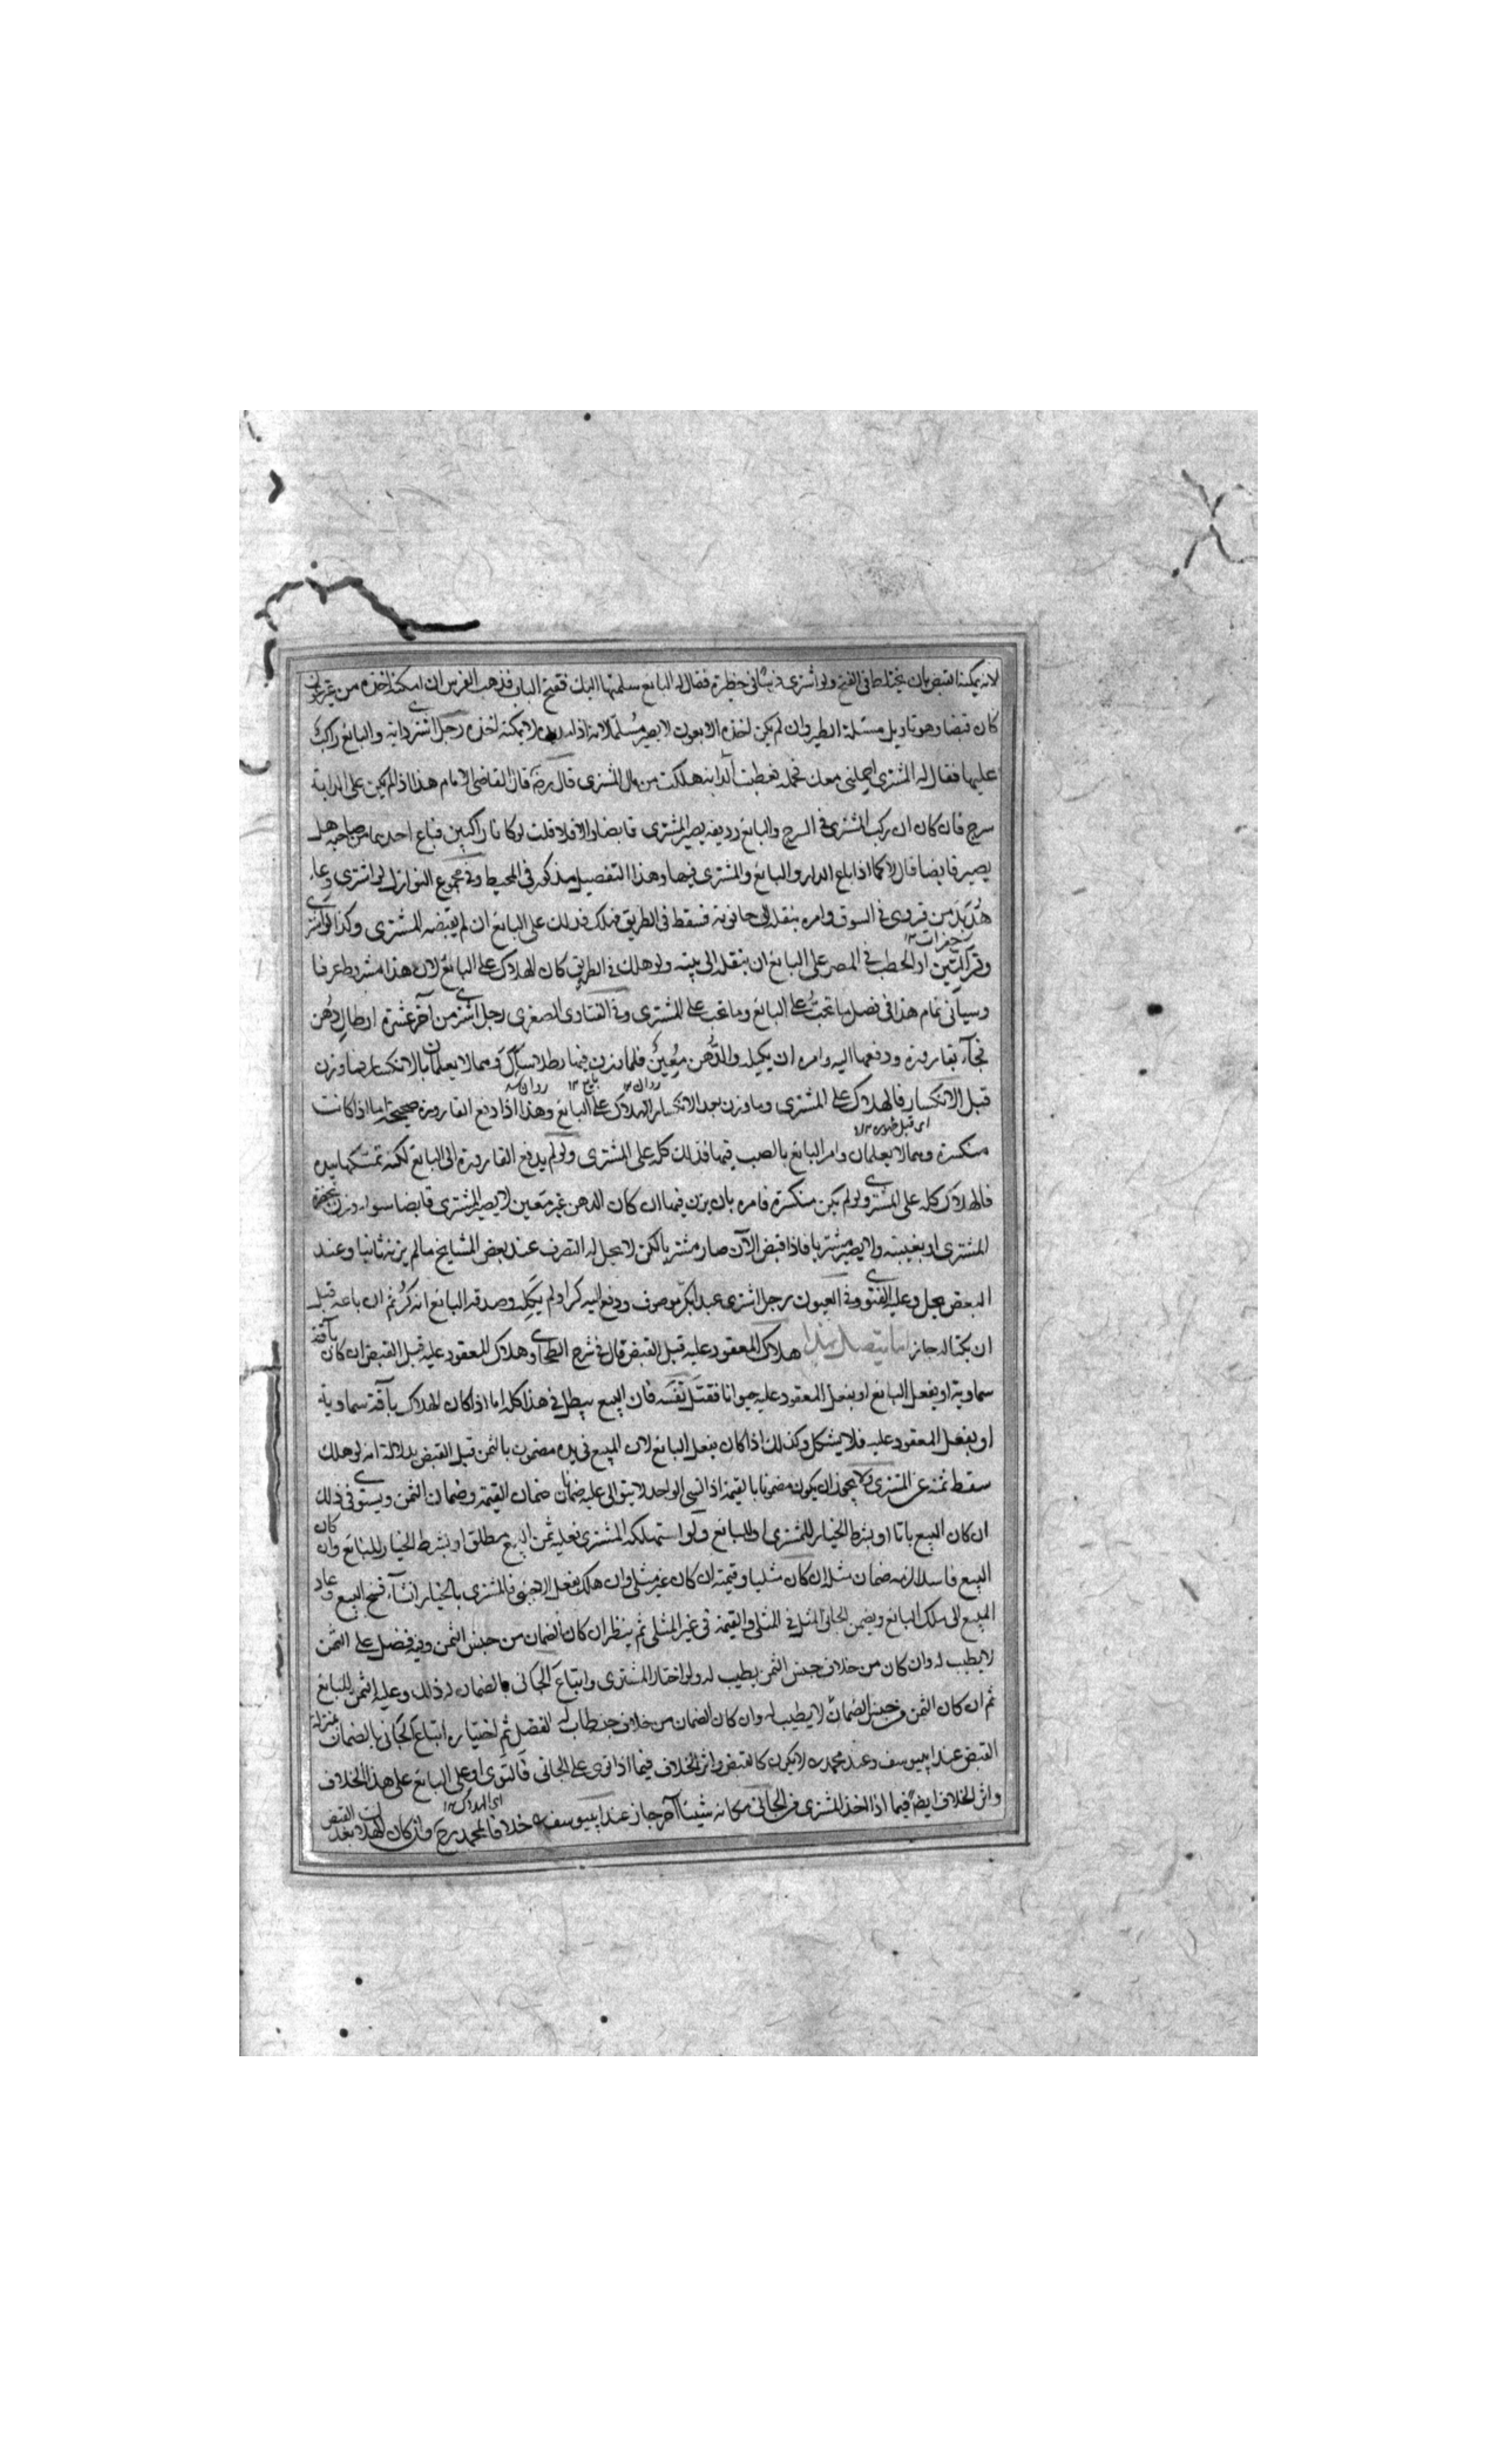 لانه يمكنه القبض بان يحتاط فى الفتح ولو اشترى فرسا فى حظيرة فقال له البايع سلمتها اليك ففتح الباب فذهب الفرس ان امكنه اخذه من غير عون
كان قبضا وهو تاويل مسئلة الطير وان لم يكن اخذه الا بعون لا يصير مسلما لانه لا يمكنه اخذه رجل اشترى دابة والبائع راكب
عليها فقال له المشترى احملنى معك فحمله فعطبت الدابة هلكت من مال المشترى قال رضـ قال القاضى الامام هذا اذا لم يكن على الدابة
سرج فان كان ان ركب المشترى فى السرج والبائع رديفه يصير المشترى قابضا والا فلا قلت لو كانا راكبين فباع احدهما من صاحبه هل
يصير قابضا قال لا كما اذا باع الدار والبائع والمشترى فيها وهذا التفصيل مذكور فى المحيط وفى مجموع النوازل لو اشترى وعاء
من قروى فى السوق وامره بنقله الى حانوته فسقط فى الطريق فهلك فذلك على البائع ان لم يقبضه المشترى وكذا لو اشترى
وقر التبن او الحطب فى المصر على البائع ان ينقله الى بيته ولو هلك فى الطريق كان الهلاك على البائع لان هذا مشروط عرفا
وسيأتى تمام هذا فى فصل ما تجب على البائع وما تجب على المشترى وفى الفتاوى الصغرى رجل اشترى من آخر عشرة ارطال دهن
فجآء بقارورة ودفعها اليه وامره ان يكيله والدهن معين فلما وزن فيها رطلا سال وهما لا يعلمان بالانكسار فما وزن
قبل الانكسار فالهلاك على المشترى وما وزن بعد الانكسار الهلاك على البائع وهذا اذا دفع القارورة صحيحة اما اذا كانت
منكسرة وهما لا يعلمان وامر البائع بالصب فيها فذلك كله على المشترى ولو لم يدفع القارورة الى البائع لكنه تمسكها بيده
فالهلاك كله على المشترى ولو لم يكن منكسرة فامره بان يزن فيها ان كان الدهن غير متعين لا يصير المشترى قابضا سواء وزن بحضرة
المشترى او بغيبته ولا يصير مشتريا فاذا قبض الآن صار مشتريا لكن لا يحل له التصرف عند بعض المشايخ ما لم يزنه ثانيا وعند
البعض يحل وعليه الفتوى وفى العيون رجل اشترى عبدا بكر موصوف ودفع اليه كرا ولم يكل وصدقه البائع انه كر ثم ان باعه قبل
ان يكتاله جاز اما يتصل بهذا هلاك المعقود عليه قبل القبض قال فى شرح الطحاوى وهلاك المعقود عليه قبل القبض ان كان بآفة
سماوية او بفعل البائع او بفعل المعقود عليه حيوانا فقتل نفسه فان البيع يبطل فى هذا كله اما اذا كان الهلاك بآفة سماوية
او بفعل المعقود عليه فلا يشكل وكذلك اذا كان بفعل البائع لان المبيع فى يده مضمون بالثمن قبل القبض بدلالة انه لو هلك
سقط ثمنه عن المشترى ولا يجوز ان يكون مضمونا بالقيمة اذ الشئ الواحد لا يتوالى عليه ضمانان ضمان القيمة وضمان الثمن ويستوى فى ذلك
ان كان البيع باتا او بشرط الخيار للمشترى او للبائع ولو استهلكه المشترى فعليه ثمن البيع مطلق او بشرط الخيار للبائع وان كان
البيع فاسدا لزمه ضمان مثله ان كان مثليا وقيمته ان كان غير مثلى وان هلك بفعل الاجنبى فالمشترى بالخيار ان شآء فسخ البيع وعاد
المبيع الى ملك البائع ويضمن الجانى المثل فى المثلى والقيمة فى غير المثلى ثم ينظر ان كان الضمان من جنس الثمن وفيه فضل على الثمن
لا يطيب له وان كان من خلاف جنس الثمن يطيب له ولو اختار المشترى واتباع الجانى بالضمان له ذلك وعليه الثمن للبائع
ثم ان كان الثمن من جنس الضمان لا يطيب له وان كان الضمان من خلاف جنسه طاب له الفضل ثم اختياره اتباع الجانى بالضمان بمنزلة
القبض عند ابيوسف وعند محمد ره لا يكون كالقبض واثر الخلاف فيما اذا توى على الجانى فالتوى على البائع على هذا الخلاف
واثر الخلاف ايضا فيما اذا اخذ المشترى من الجانى مكانه شيئا آخر جاز عند ابيوسف خلافا لمحمد رح وان كان الهلاك بعد القبض